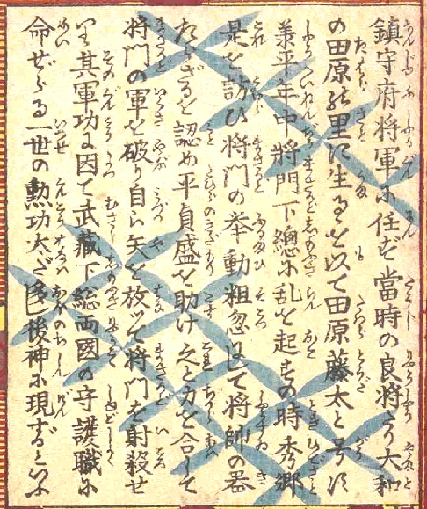 鎮守府将軍に任ず當時の良将なり大和
の田原の里に生るを以て田原藤太と号す
承平年中將門下總に乱を起すの時秀郷
是を訪ひ將門の挙動粗忽にして將帥の器
たらざるを認め平貞盛を助け之と力を合して
將門の軍を破り自ら矢を放つて將門を射殺せ
り其軍功に因て武藏下総両國の守護職に
命ぜらる一世の勲功大だ後神に現ずといふ